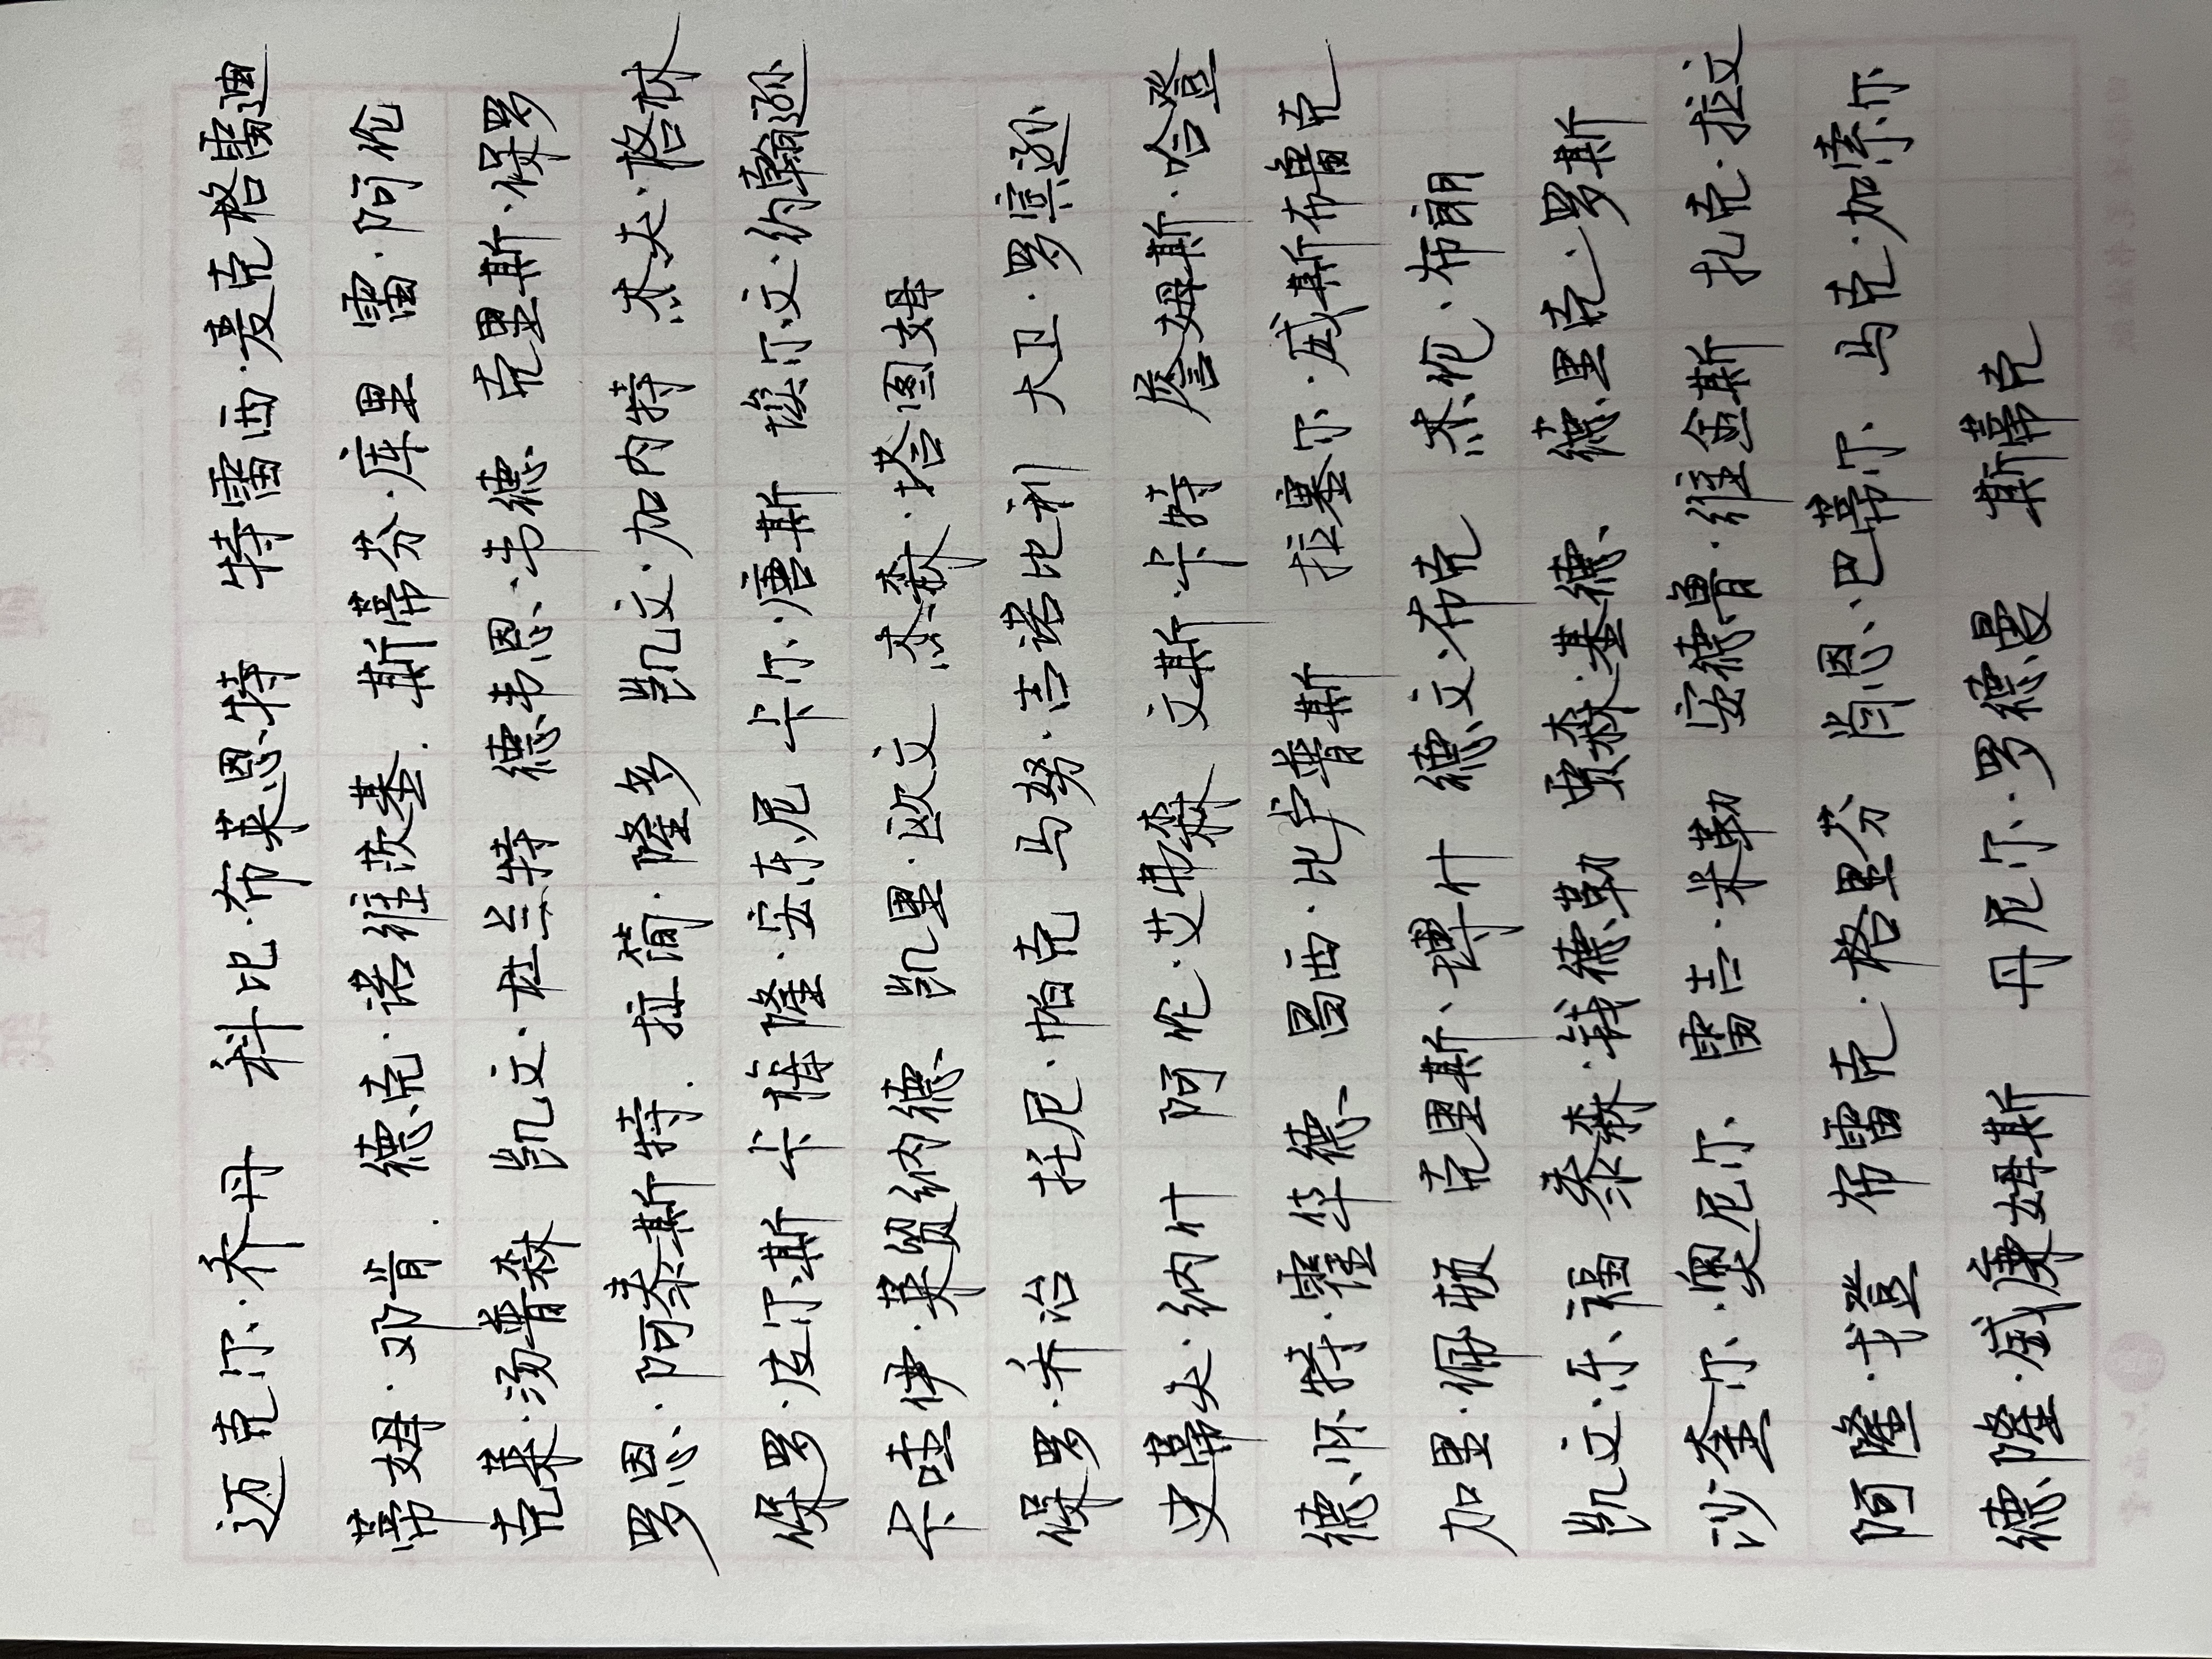 迈克尔·乔丹 科比·布莱恩特 特雷西·麦克格雷迪
蒂姆·邓肯. 德克·诺维茨基. 斯蒂芬·库里 雷·阿伦
克莱·汤普森 凯文·杜兰特 德韦恩·韦德 克里斯·保罗
罗恩·阿泰斯特. 拉简·隆多 凯文·加内特 杰夫·格林
保罗·皮尔斯 卡梅隆·安东尼 卡尔·唐斯 埃尔文·约翰逊
卡哇伊·莱昂纳德 凯里·欧文 杰森·塔图姆
保罗·乔治 托尼·帕克 马努·吉诺比利 大卫·罗宾逊
史蒂夫·纳什 阿伦·艾弗森 文斯·卡特 詹姆斯·哈登
德怀特·霍华德 昌西·比卢普斯 拉塞尔·威斯布鲁克
加里·佩顿 克里斯·博什 德文·布克 杰伦·布朗
凯文·乐福 泰森·钱德勒 贾森·基德 德里克·罗斯
沙奎尔·奥尼尔 雷吉·米勒 安德鲁·维金斯 扎克·拉文
阿隆·戈登 布雷克·格里芬 肖恩·巴蒂尔 马克·加索尔
德隆·威廉姆斯 丹尼尔·罗德曼 斯蒂克